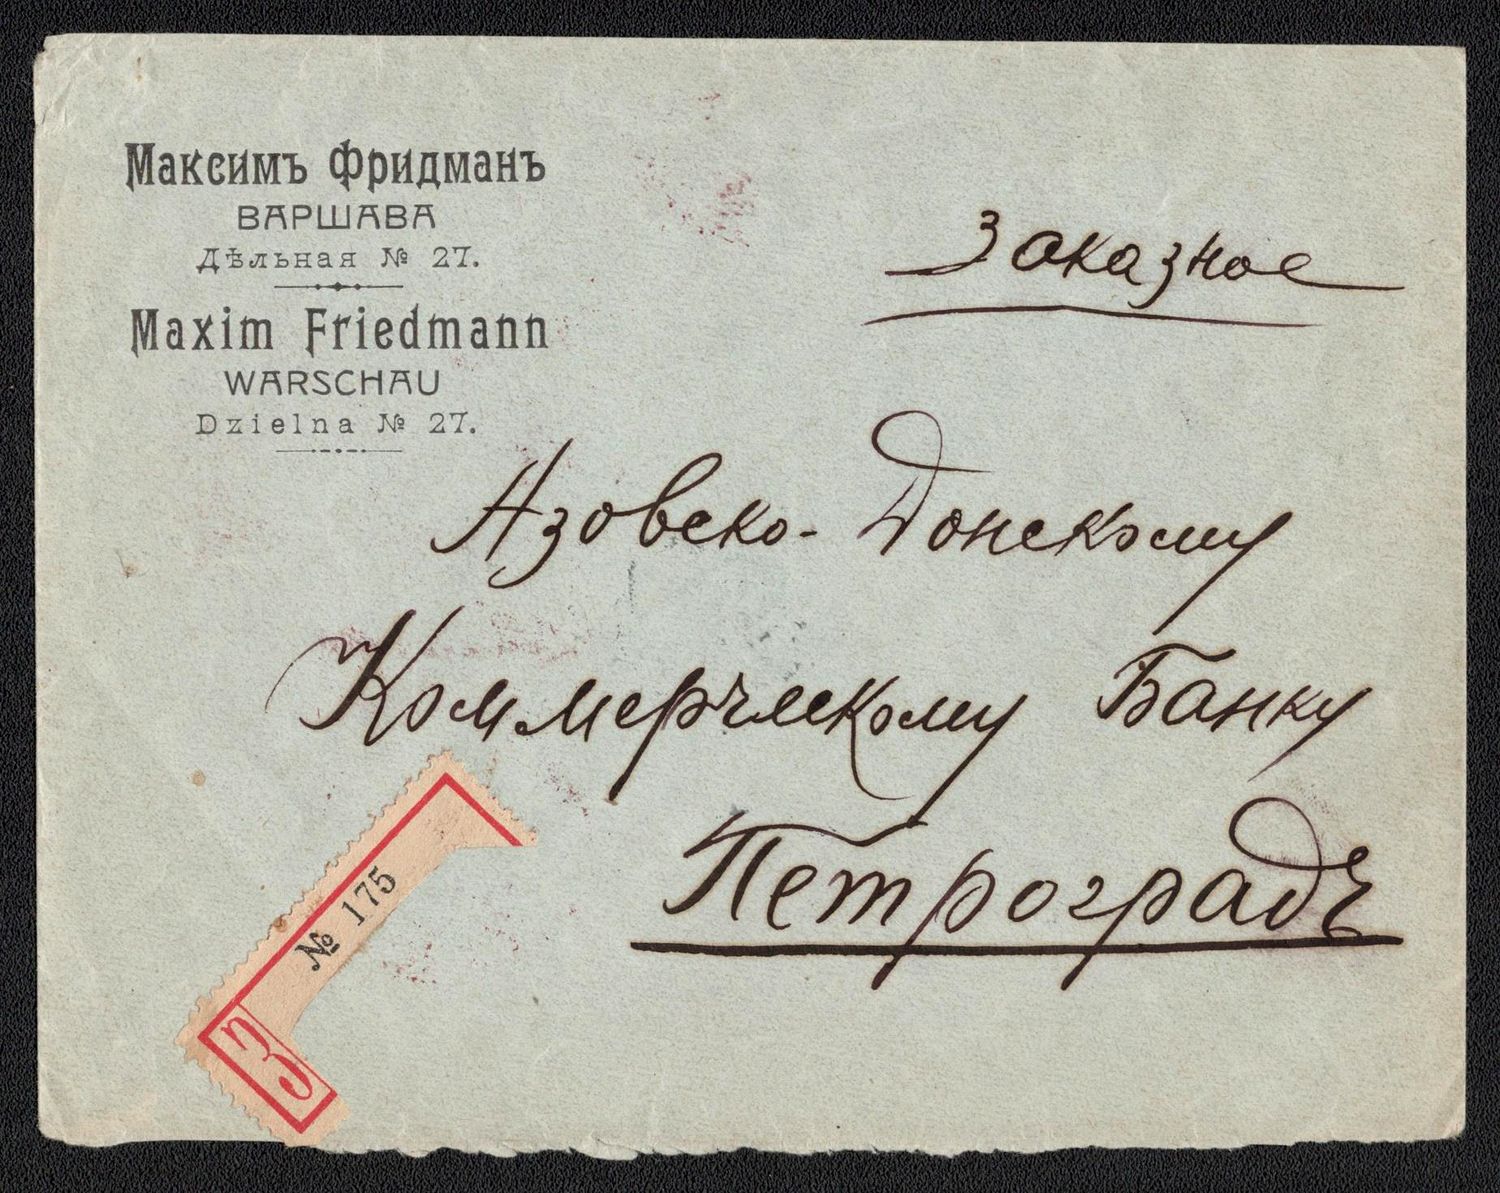 Максимъ Фридманъ
ВАРШАВА
Дѣльная № 27.
Maxim Friedmann
WARSCHAU
Dzielna № 27.
Заказное
Азовско-Донскому
Коммерческому Банку
Петроградъ
№ 175
З